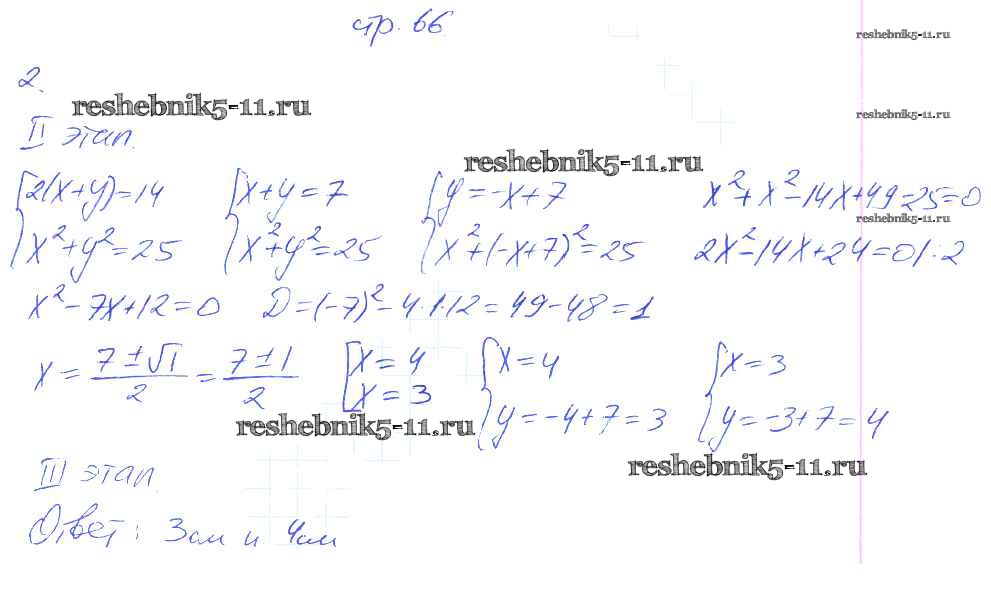 стр. 66
reshebnik5-11.ru
2.
reshebnik5-11.ru
reshebnik5-11.ru
II этап.
reshebnik5-11.ru
{2(x+y)=14 {x+y=7 {y=-x+7 x²+x²-14x+49-25=0
reshebnik5-11.ru
{x²+y²=25 {x²+y²=25 {x²+(-x+7)²=25 2x²-14x+24=0|:2
x²-7x+12=0 D=(-7)²-4·1·12=49-48=1
x = (7±√1)/2 = (7±1)/2 [x=4 {x=4 {x=3
[x=3 {y=-4+7=3 {y=-3+7=4
reshebnik5-11.ru
reshebnik5-11.ru
III этап.
Ответ: 3см и 4см